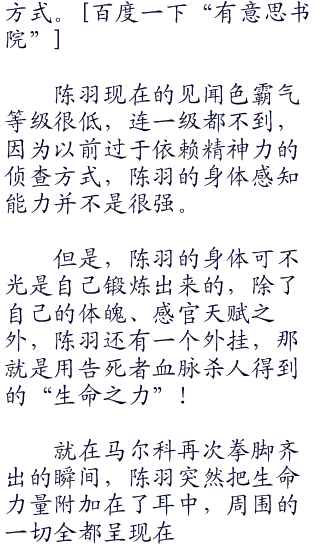 方式。[百度一下“有意思书
院”]
陈羽现在的见闻色霸气
等级很低，连一级都不到，
因为以前过于依赖精神力的
侦查方式，陈羽的身体感知
能力并不是很强。
但是，陈羽的身体可不
光是自己锻炼出来的，除了
自己的体魄、感官天赋之
外，陈羽还有一个外挂，那
就是用告死者血脉杀人得到
的“生命之力”！
就在马尔科再次拳脚齐
出的瞬间，陈羽突然把生命
力量附加在了耳中，周围的
一切全都呈现在